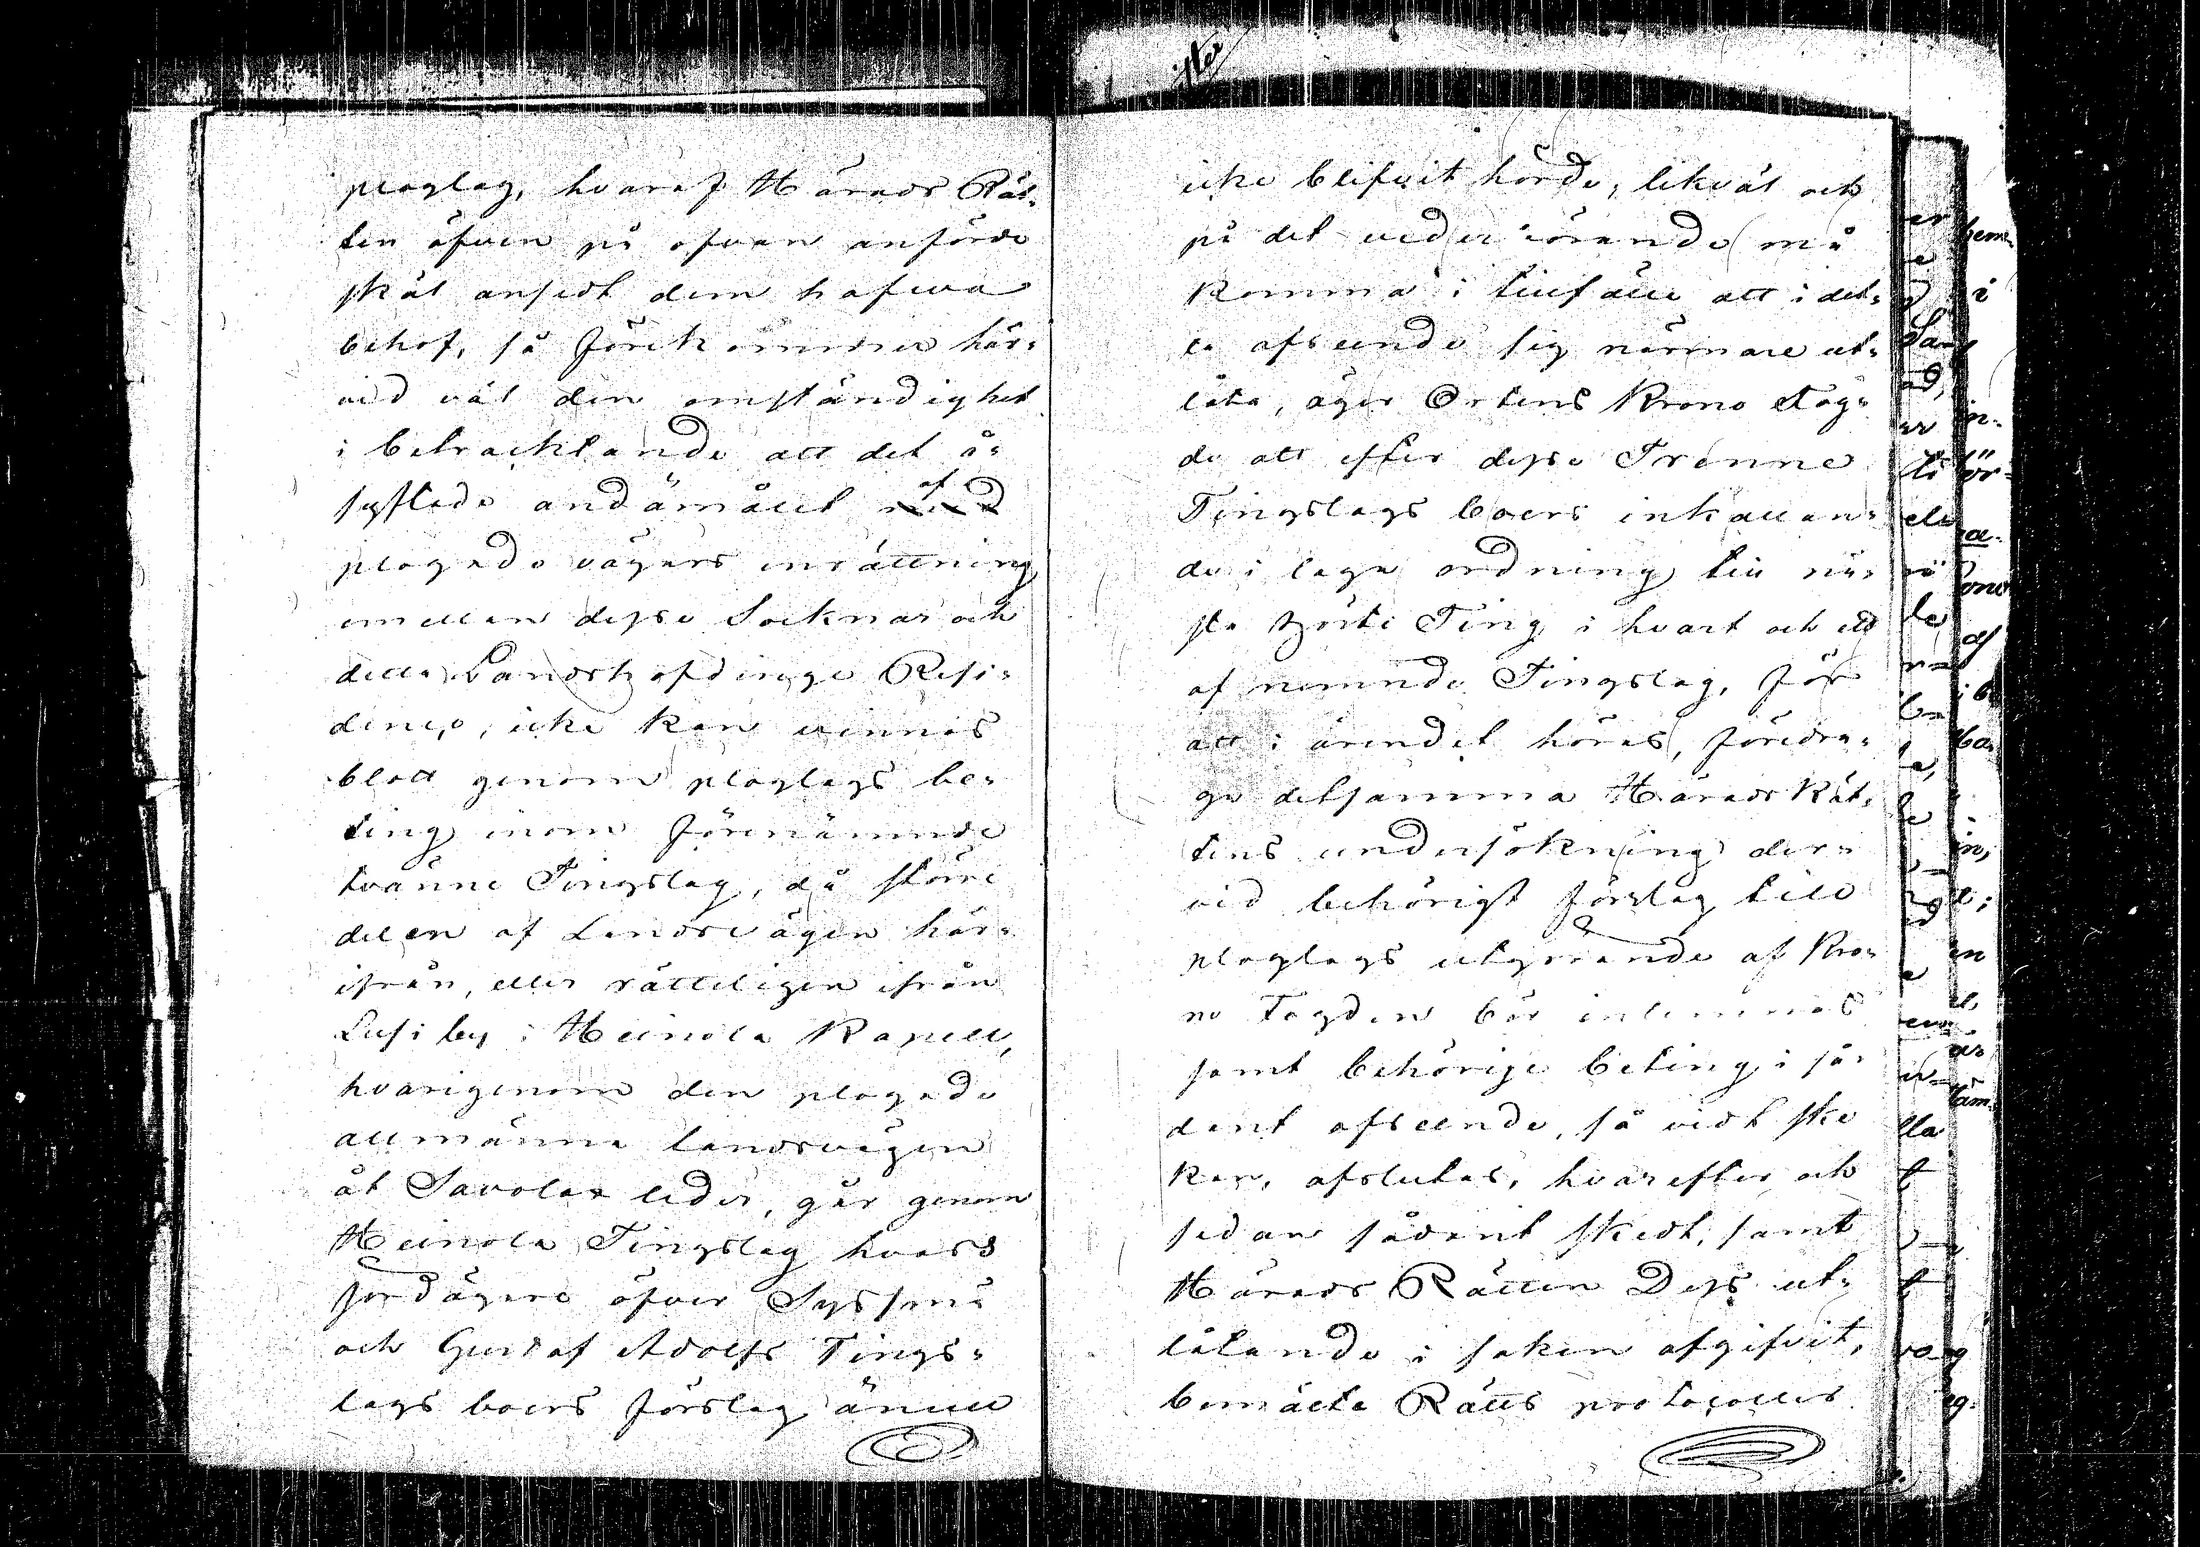 ploglag, hvaraf Härads Rät-
ten äfven på ofvan anförde
skäl ansedt dem hafwa
behof, så förekommer här-
vid väl den omständighet
i betracktande att det å-
syftade andamålet af
plogade vägars inrättning
emellan desse Socknar och
detta Landshöfdinge Resi-
dence, icke kan vinnas
blott genom ploglags be-
ting inom förenämnde
tvänne Tingslag, då större
delen af Landsvägen här-
ifrån, eller rätteligen ifrån
Lusi by i Heinola Kapell,
hvarigenom den plogade
allmänna landsvägen
åt Savolax leder, går genom
Heinola Tingslag hvars
jordägare öfver Sysmä
och Gustaf Adolfs Tings-
lags boers förslag ännu
icke blifvit hörde; likväl och
på det vederbörande må
komma i tillfälle att i det-
ta afseende sig närmare ut-
låta, äger Ortens Krono Fog-
de att efter desse Trenne
Tingslags boers inkallan-
de i laga ordning till nä-
sta Ting i hvart och ett
af nemnde Tingslag, för
att i ärendet höras, föredra-
ga detsamma Härads Rät-
tens undersökning der-
vid behörigt förslag till
ploglags utgörande af Kro-
no Fogden bör inlemnas
samt behörige beting i så-
dant afseende, så vidt ske
kan, afslutas, hvarefter och
sedan sådant skedt, samt
Härads Rätten Dess ut-
låtande i saken afgifvit,
bemälte Rätts protocoller